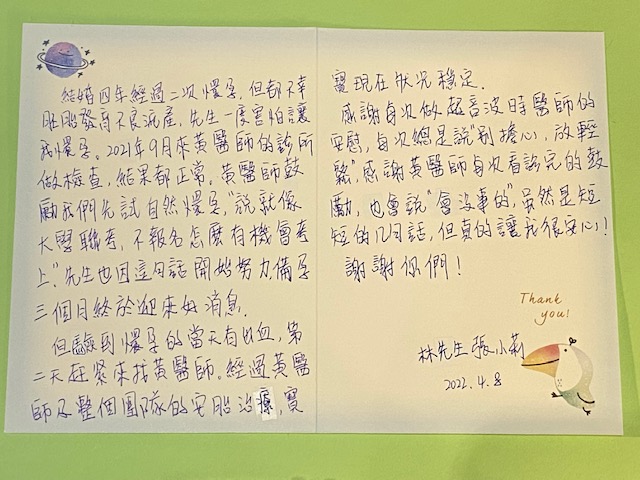 結婚四年經過二次懷孕,但都不幸
胚胎發育不良流產,先生一度害怕讓
我懷孕。2021年9月來黃醫師的診所
做檢查,結果都正常,黃醫師鼓
勵我們先試自然懷孕,"說就像
大學聯考,不報名怎麼有機會考
上",先生也因這句話開始努力備孕
三個月終於迎來好消息.
但驗到懷孕的當天有出血,第
二天趕緊來找黃醫師。經過黃醫
師及整個團隊的安胎治療,寶
寶現在狀況穩定.
感謝每次做超音波時醫師的
安慰,每次總是說"別擔心,放輕
鬆",感謝黃醫師每次看診完的鼓
勵,也會說"會沒事的",雖然是短
短的几句話,但真的讓我很安心!
謝謝你們!
Thank
you!
林先生 張小莉
2022.4.8